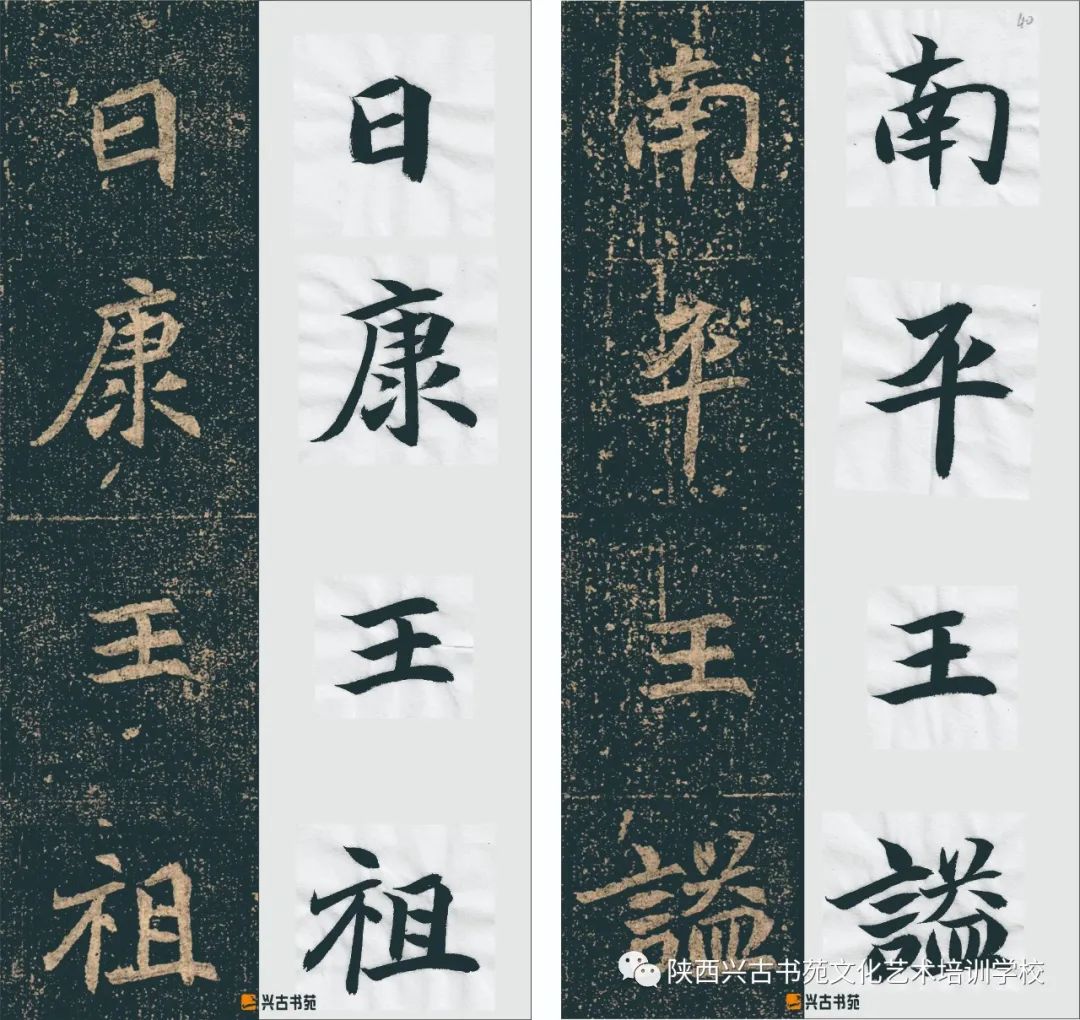 南平王謚
南平王謚
曰康王祖
曰康王祖
40
兴古书苑
兴古书苑
陕西兴古书苑文化艺术培训学校